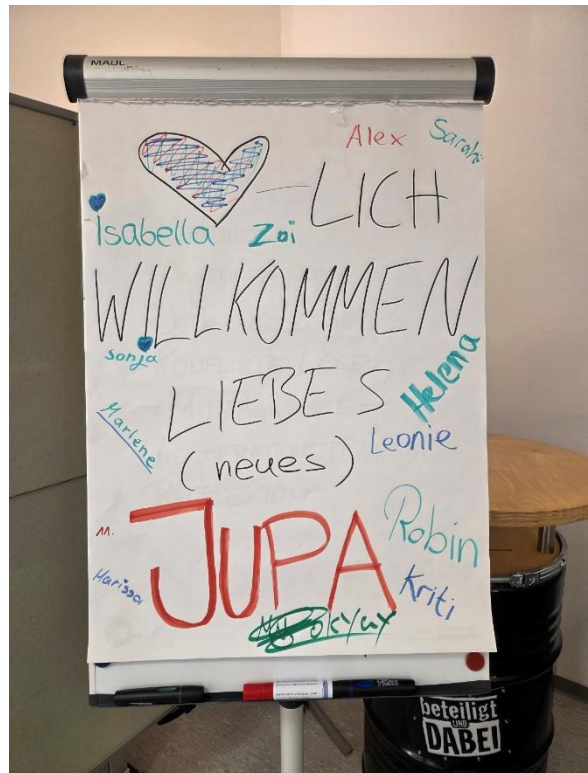 MAUL
Alex
Sarah
LICH
Isabella
Zoi
WILLKOMMEN
sonja
LIEBES
Helena
Marlene
Leonie
(neues)
JUPA
M.
Robin
Marissa
Kriti
beteiligt
UND
DABEI